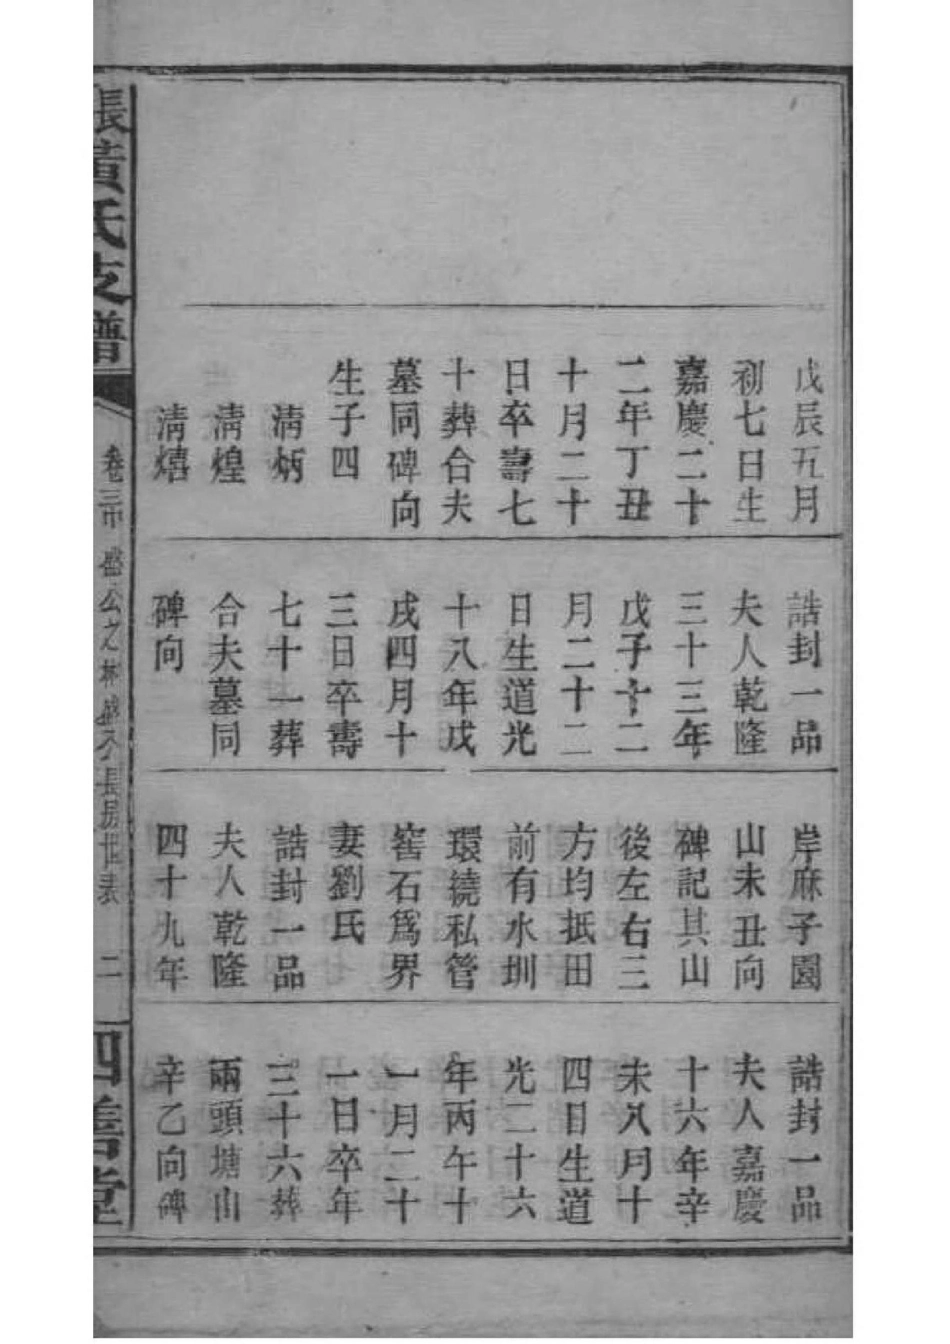 戊辰五月
初七日生
嘉慶二十
二年丁丑
十月二十
日卒壽七
十葬合夫
墓同碑向
生子四
淸炳
淸煌
淸熺
誥封一品
夫人乾隆
三十三年
戊子十二
月二十二
日生道光
十八年戊
戌四月十
三日卒壽
七十一葬
合夫墓同
碑向
岸麻子園
山未丑向
碑記其山
後左右三
方均抵田
前有水圳
環繞私管
窖石爲界
妻劉氏
誥封一品
夫人乾隆
四十九年
誥封一品
夫人嘉慶
十六年辛
未八月十
四日生道
光二十六
年丙午十
一月二十
一日卒年
三十六葬
兩頭塘山
辛乙向碑
張黃氏支譜
卷三 盛公之 長房世表 二
四善堂